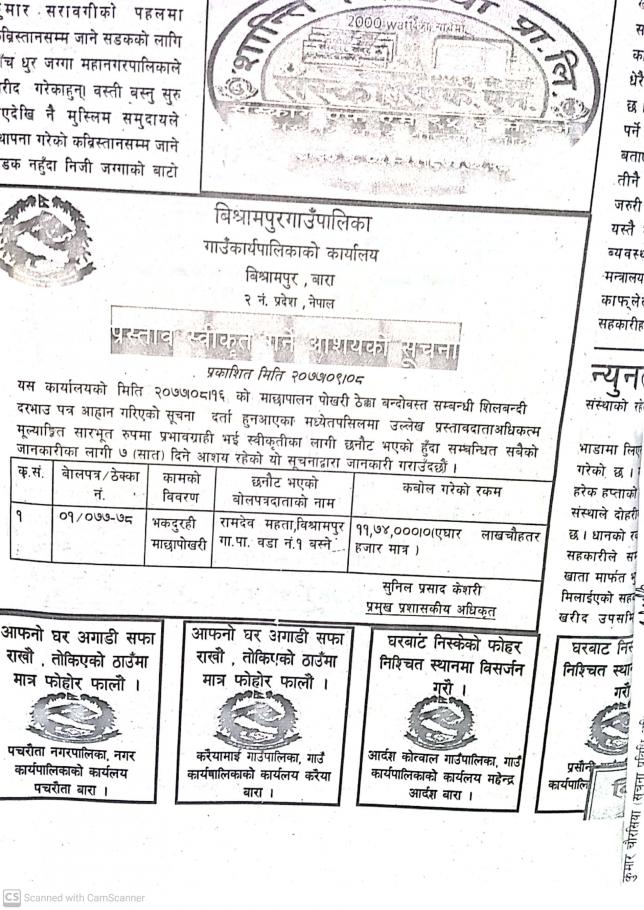 मार सरावगीको पहलमा
जाने सडकको लागि
धुर जग्गा महानगरपालिकाले
गरेकाहुन् वस्ती बस्तु सुरु
नै मुस्लिम समुदायले
गरेको कब्रिस्तानसम्म जाने
नहुँदा निजी जग्गाको बाटो
शान्ति
प्रा.लि.
2000 watt
बिश्रामपुरगाउँपालिका
गाउँकार्यपालिकाको कार्यालय
बिश्रामपुर , बारा
२ नं. प्रदेश , नेपाल
प्रस्ताव स्वीकृत गर्ने आशयको सूचना
प्रकाशित मिति २०७७।०९।०८
यस कार्यालयको मिति २०७७।०८।१६ को माछापालन पोखरी ठेक्का बन्दोबस्त सम्बन्धी शिलबन्दी
दरभाउ पत्र आहान गरिएको सूचना दर्ता हुनआएका मध्येतपसिलमा उल्लेख प्रस्तावदाताअधिकत्म
मूल्याङ्कित सारभूत रुपमा प्रभावग्राही भई स्वीकृतीका लागी छनौट भएको हुँदा सम्बन्धित सबैको
जानकारीका लागी ७ (सात) दिने आशय रहेको यो सूचनाद्वारा जानकारी गराउँदछौं ।
क्र.सं. बोलपत्र/ठेक्का नं. कामको विवरण छनौट भएको बोलपत्रदाताको नाम कबोल गरेको रकम
१ ०१/०७७-७८ भकदुरही माछापोखरी रामदेव महता,विश्रामपुर गा.पा. वडा नं.१ बस्ने ११,७४,०००।०(एघार लाखचौहतर हजार मात्र ।
सुनिल प्रसाद केशरी
प्रमुख प्रशासकीय अधिकृत
आफनो घर अगाडी सफा
राखौ , तोकिएको ठाउँमा
मात्र फोहोर फालौ ।
पचरौता नगरपालिका, नगर
कार्यपालिकाको कार्यलय
पचरौता बारा ।
आफनो घर अगाडी सफा
राखौ , तोकिएको ठाउँमा
मात्र फोहोर फालौ ।
करैयामाई गाउँपालिका, गाउँ
कार्यपालिकाको कार्यलय करैया
बारा ।
घरबाट निस्केको फोहर
निश्चित स्थानमा विसर्जन
गरौ ।
आर्दश कोत्वाल गाउँपालिका, गाउँ
कार्यपालिकाको कार्यलय महेन्द्र
आर्दश बारा ।
घरबाट
निश्चित
गरौ
प्रसौनी
धेरै
छ
पर्ने
तीनै
जरुरी
यस्तै
मन्त्रालय
सहकारीह
संस्थाको
भाडामा
गरेको छ ।
हरेक हप्ताको
संस्थाले दोहरी
छ । धानको
सहकारीले
खाता मार्फत
मिलाईएको
खरीद
CS Scanned with CamScanner